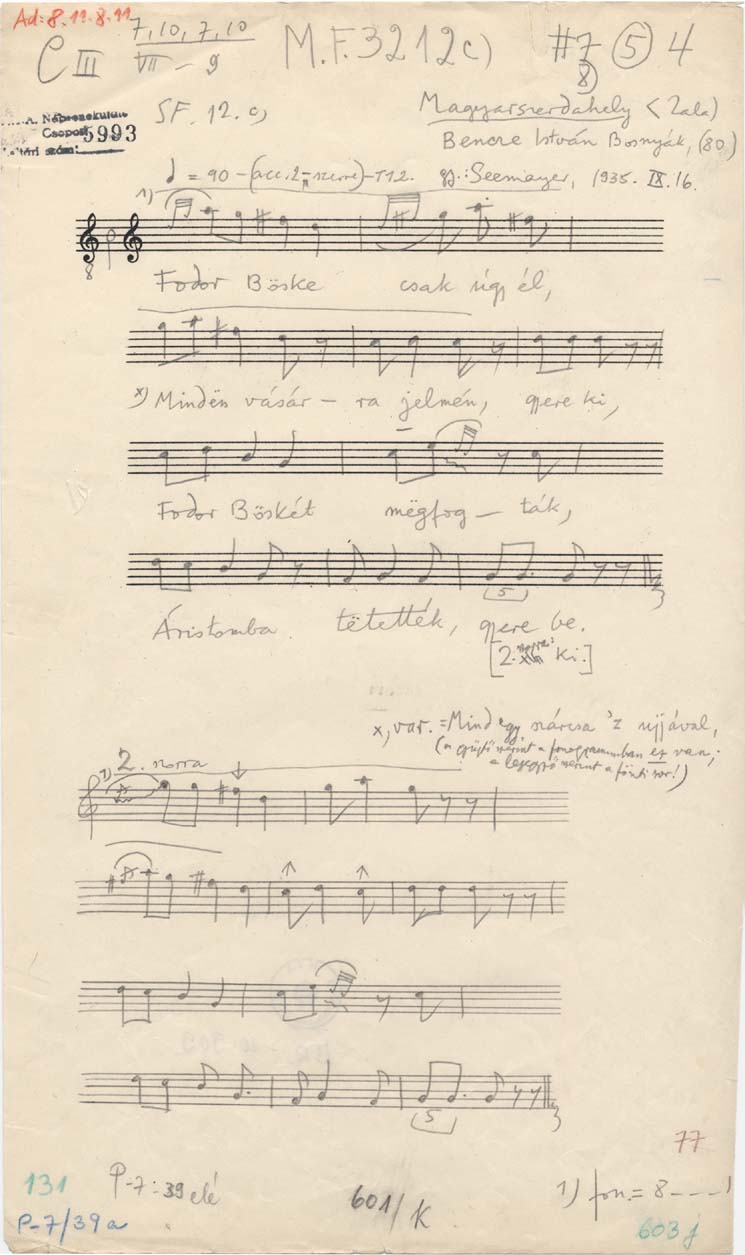 Ad: 8.11.8.11
C III 7,10,7,10 M.F. 3212 c) #7 (5) 4
VII – 9 8)
SF. 12. c) Magyarszerdahely (Zala)
A. Népzenekutató
Csoport 5993
Leltári szám:
Bencze István Bosnyák, (80)
= 90 – (acc. 2-szerre) – 112. gy.: Seemayer, 1935. IX. 16.
1)
8
Fodor Böske csak úgy él,
x) Mindën vásár – ra jelmén, gyere ki,
Fodor Böskét mëgfog – ták,
5
Áristomba tëtették, gyere be.
[2. ki.]
x) var. = Mind egy szárcsa 'z ujjával,
(a gyűjtő szerint a fonogrammban ez van;
a lejegyző szerint a fönti sor!)
1) 2. szorra
5
77
131 P-7: 39 elé 601/K 1) fon. = 8 - - - - !
P-7/39a 603 j